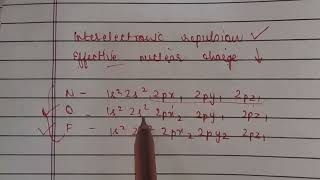 Interelectronic repulsion ✓
Effective nuclear charge ↓
N - 1s² 2s² 2px₁ 2py₁ 2pz₁
O - 1s² 2s² 2px₂ 2py₁ 2pz₁
F - 1s² 2px₂ 2py₂ 2pz₁